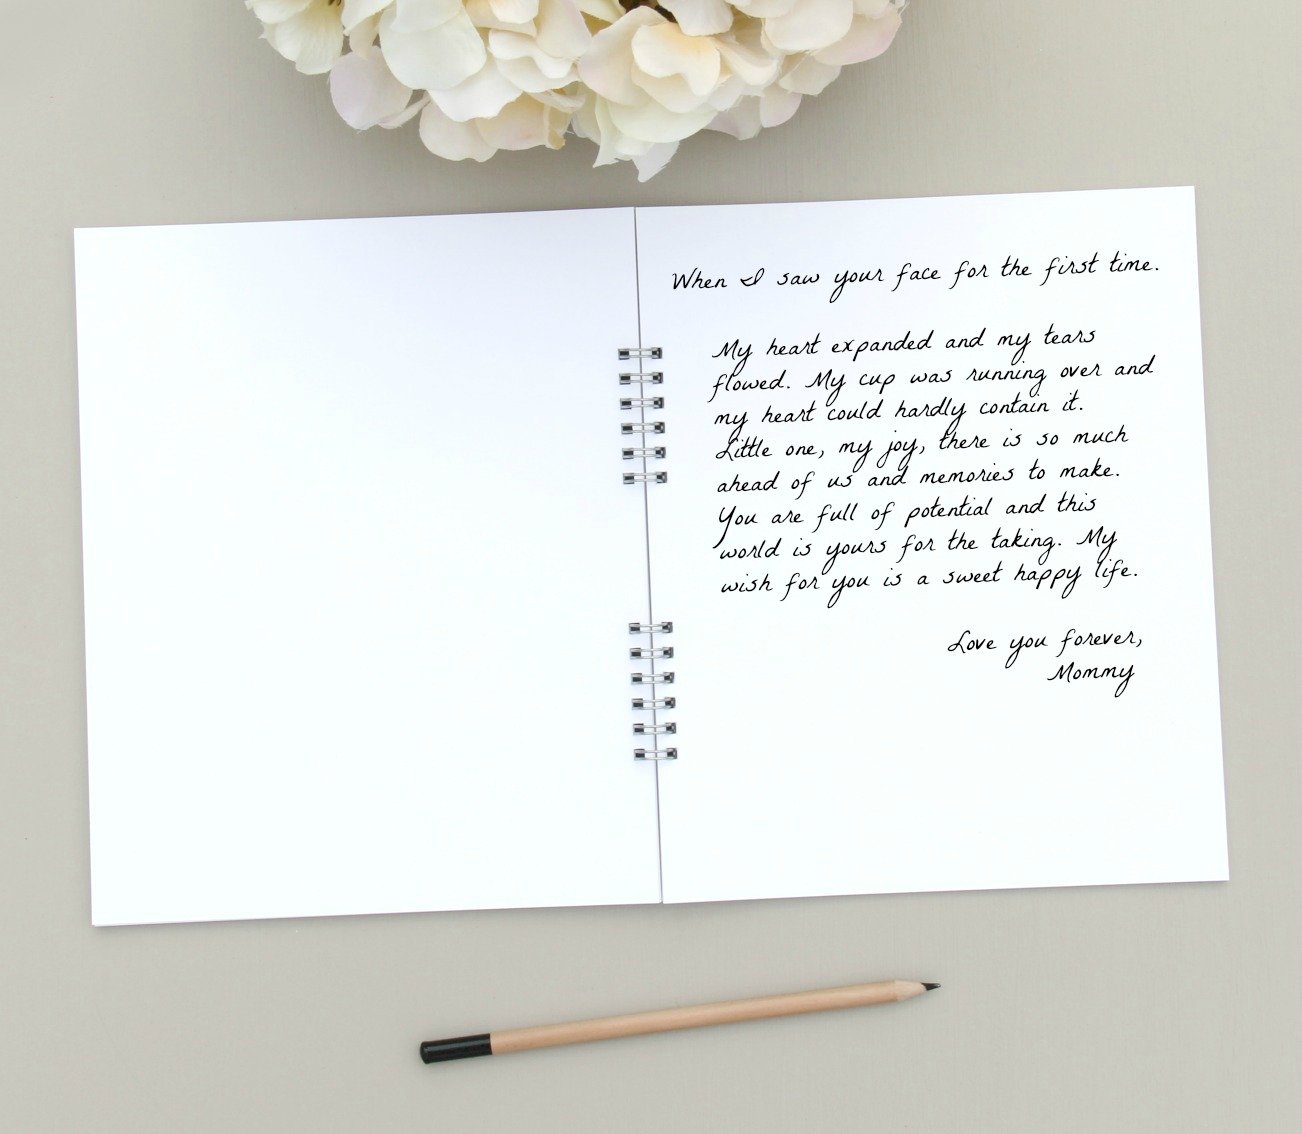 When I saw your face for the first time.
My heart expanded and my tears
flowed. My cup was running over and
my heart could hardly contain it.
Little one, my joy, there is so much
ahead of us and memories to make.
You are full of potential and this
world is yours for the taking. My
wish for you is a sweet happy life.
Love you forever,
Mommy